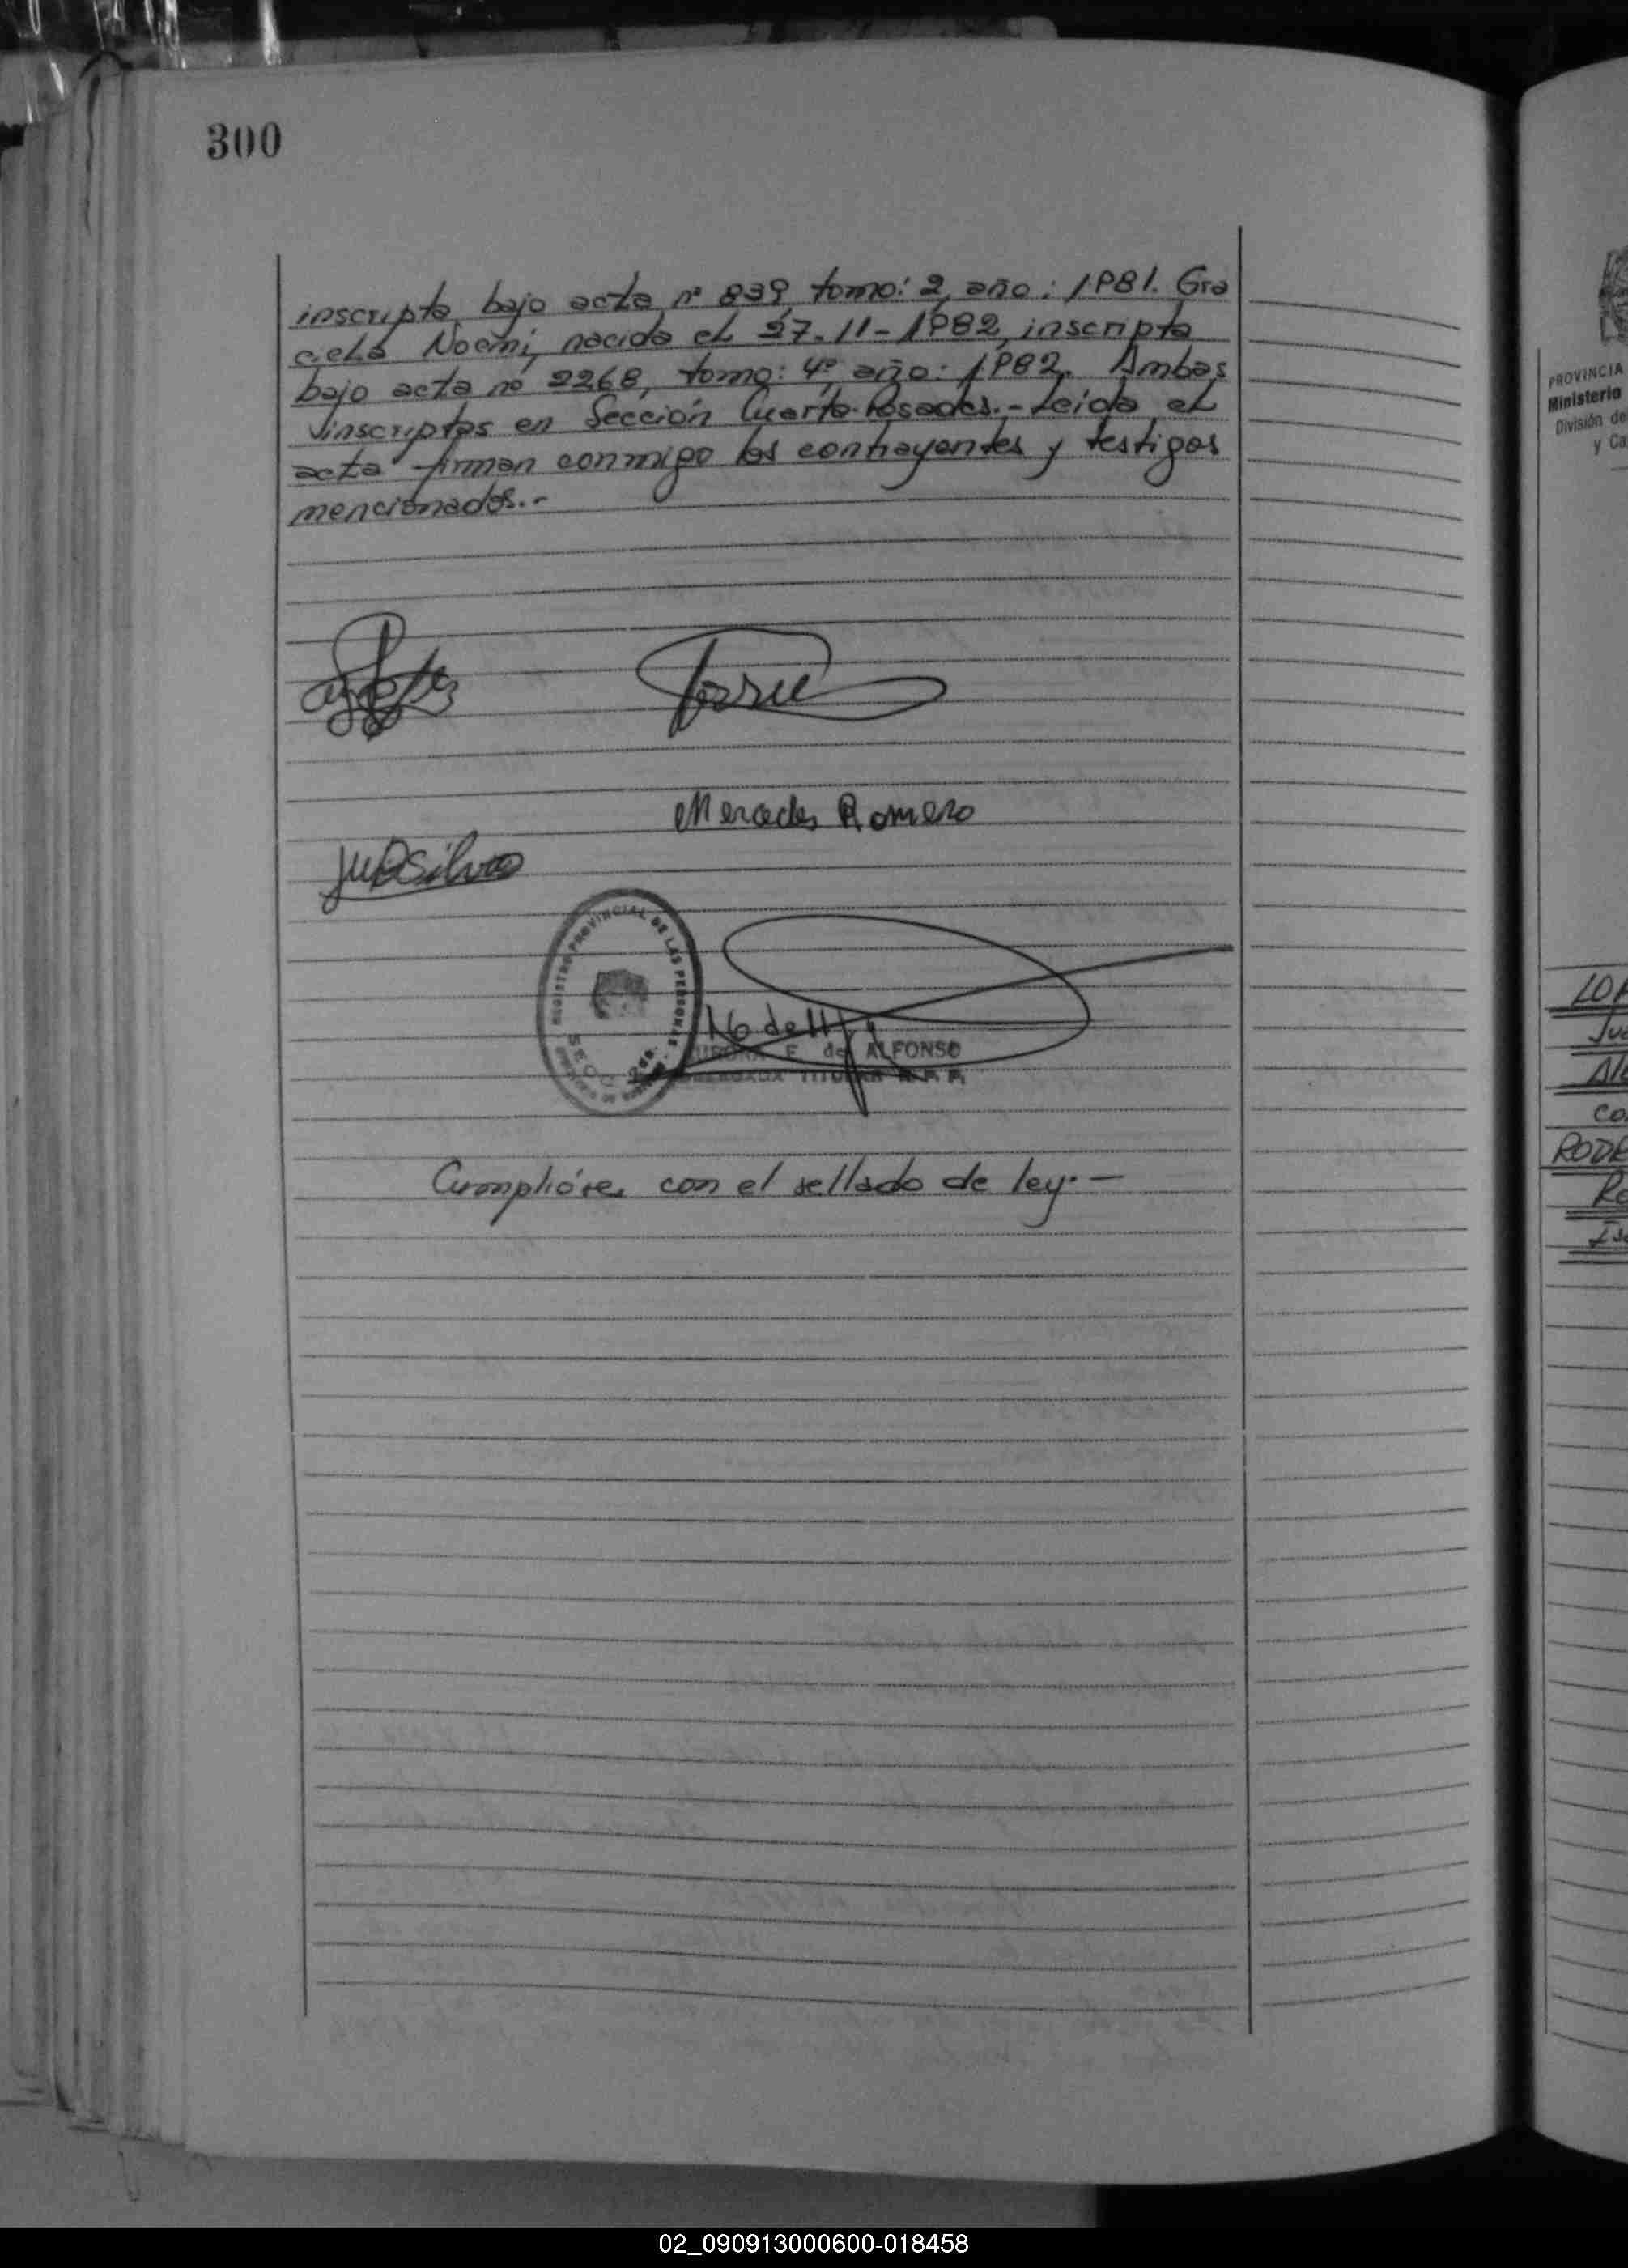 300
inscripta bajo acta nº 839, tomo: 2, año: 1981. Gra
ciela Noemi, nacida el 27-11-1982, inscripta
bajo acta nº 2268, tomo: 4º, año: 1982. Ambas
inscriptas en Sección Cuarta-Posadas.- Leida el
acta firman conmigo los contrayentes y testigos
mencionados.-
Mercedes Romero
REGISTRO PROVINCIAL DE LAS PERSONAS
E. de ALFONSO
TITULAR R. P. P.
Cumplióse con el sellado de ley.-
PROVINCIA
Ministerio
División de
y Ca
RODR
02_090913000600-018458